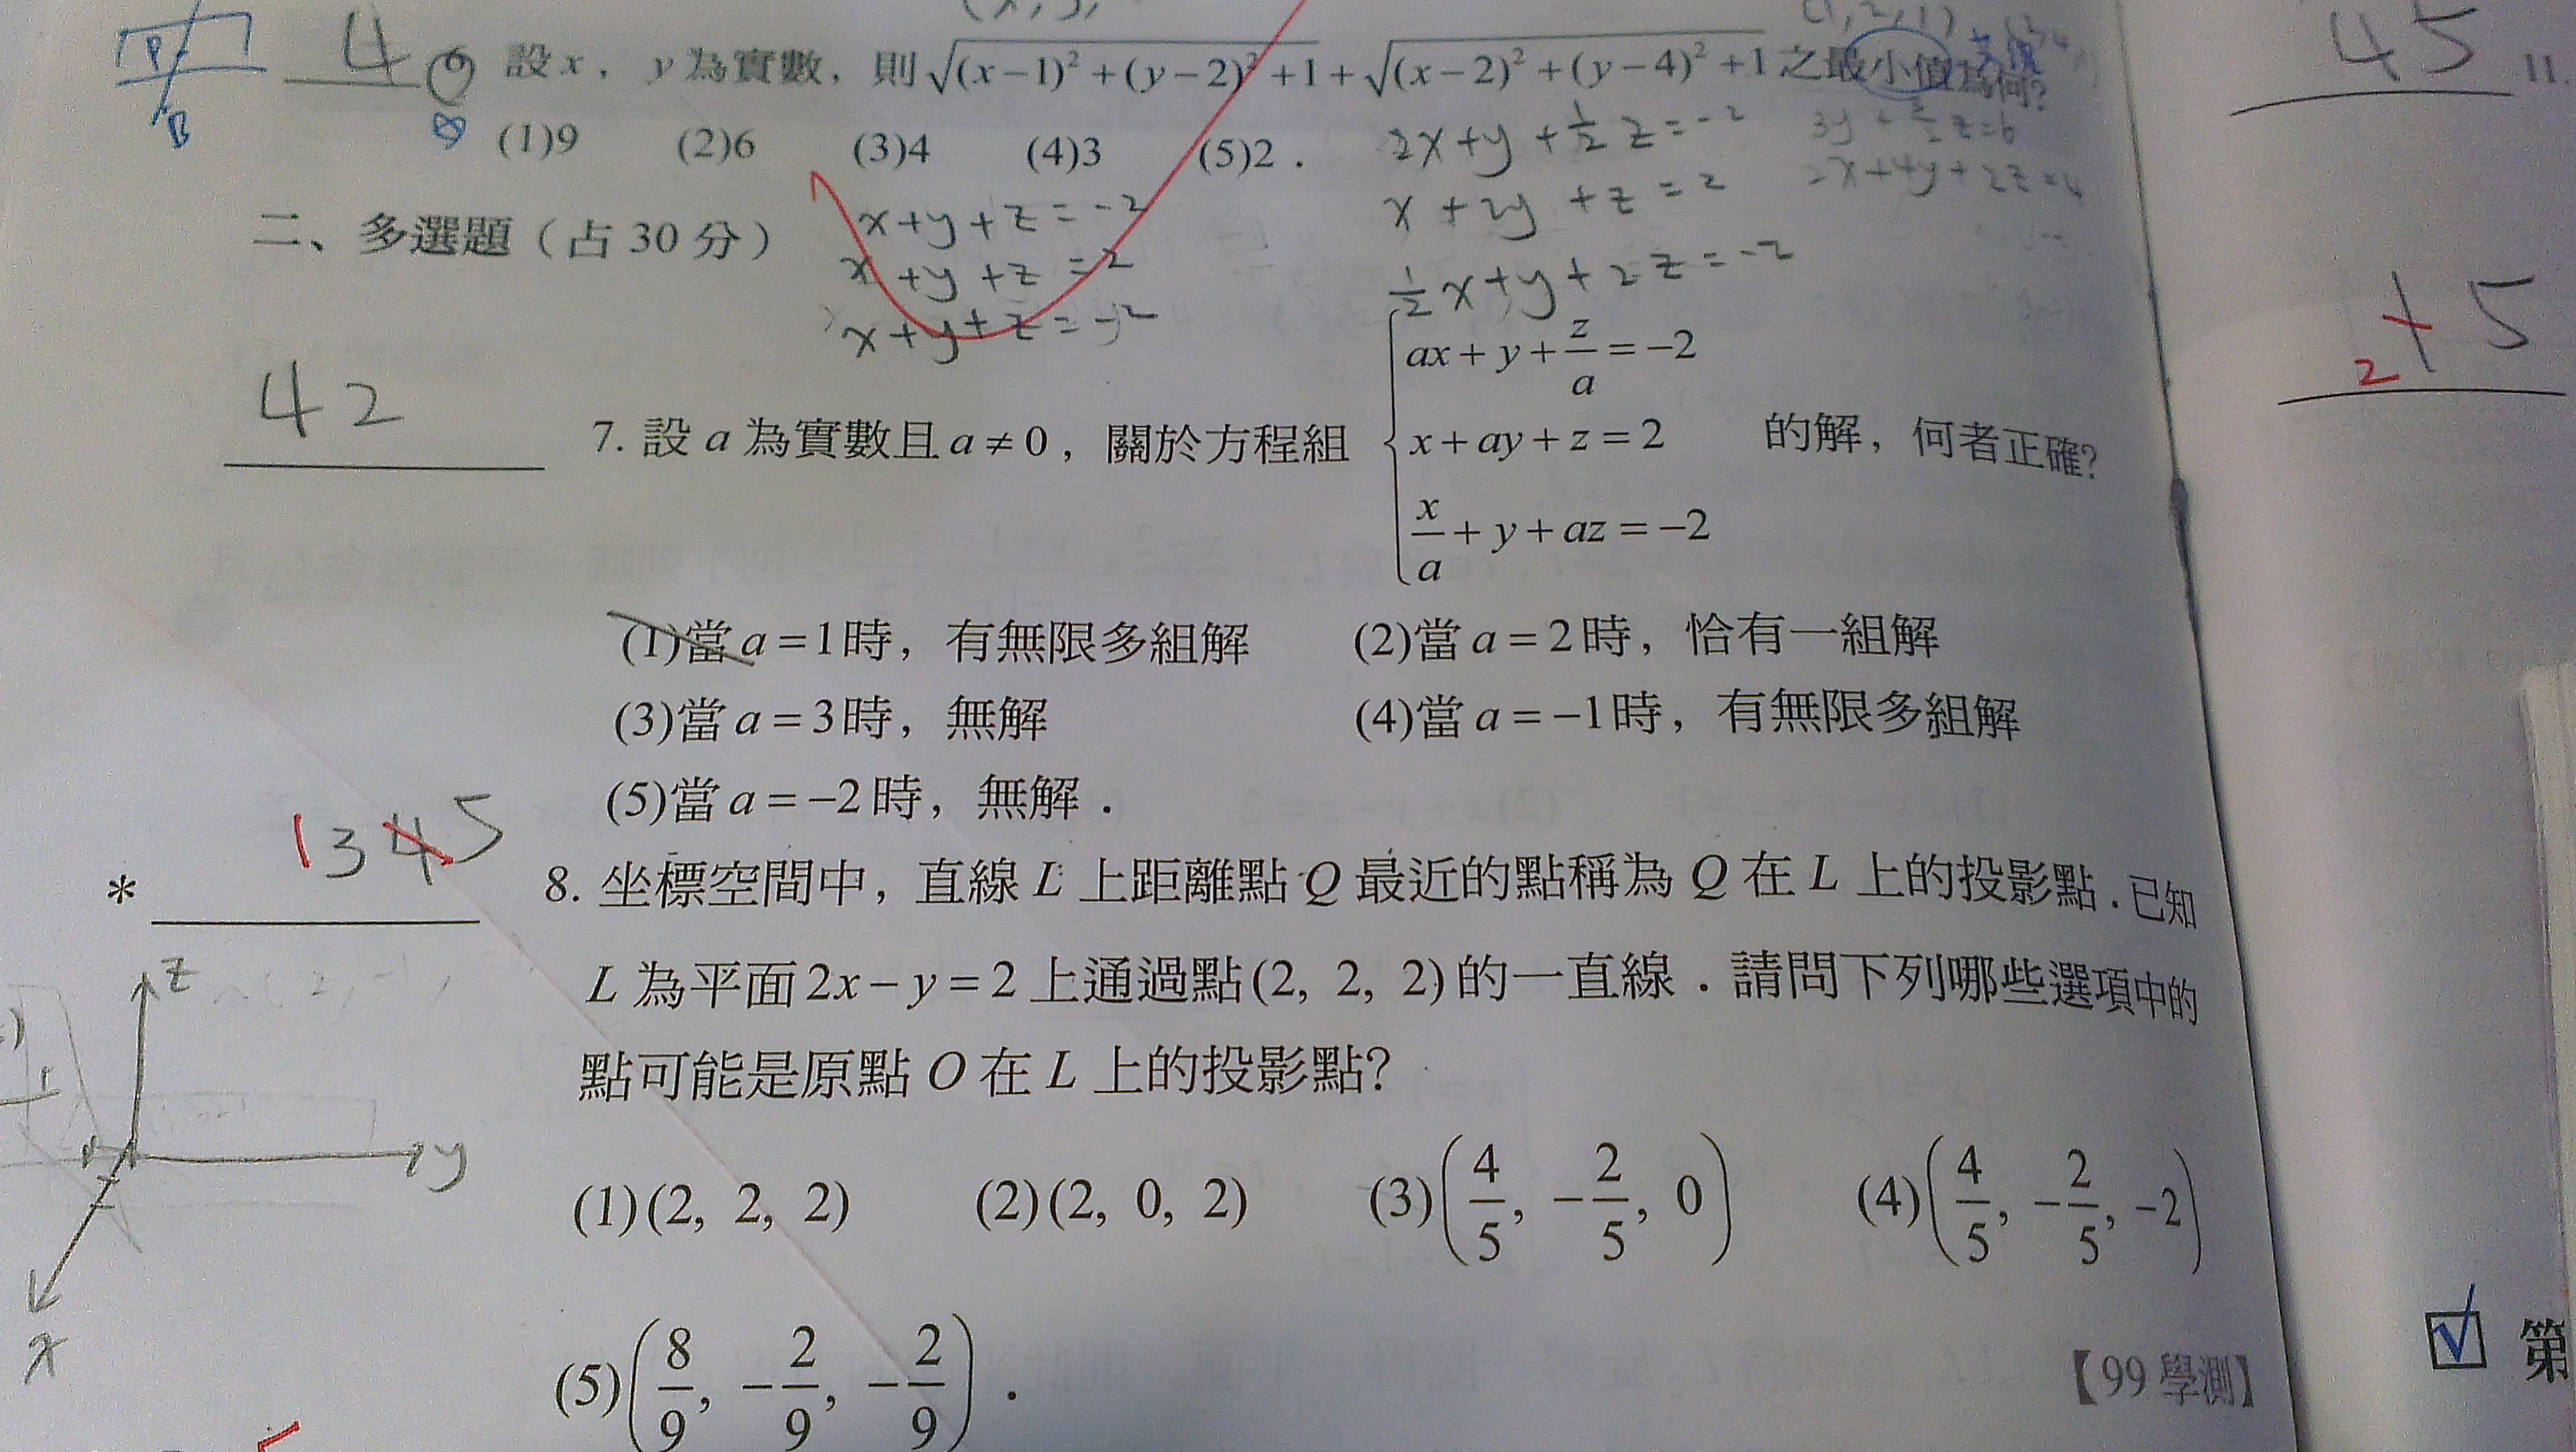 4 6 設 x , y 為實數, 則 √((x−1)²+(y−2)²+1) + √((x−2)²+(y−4)²+1) 之最小值為何?
(1)9 (2)6 (3)4 (4)3 (5)2 .
2x+y+1/2 z=-2
x+2y+z=2
1/2 x+y+2z=-2
2x+4y+2z=4
二、多選題（占 30 分）
x+y+z=-2
x+y+z=2
x+y+z=-2
42
7. 設 a 為實數且 a≠0 , 關於方程組 { ax+y+z/a=−2
x+ay+z=2
x/a+y+az=−2 的解, 何者正確?
(1)當 a=1時, 有無限多組解 (2)當 a=2時, 恰有一組解
(3)當 a=3時, 無解 (4)當 a=−1時, 有無限多組解
(5)當 a=−2時, 無解 .
1345
* 8. 坐標空間中, 直線 L 上距離點 Q 最近的點稱為 Q 在 L 上的投影點 . 已知
L 為平面 2x−y=2 上通過點(2, 2, 2)的一直線 . 請問下列哪些選項中的
點可能是原點 O 在 L 上的投影點?
(1)(2, 2, 2) (2)(2, 0, 2) (3)(4/5, −2/5, 0) (4)(4/5, −2/5, −2)
(5)(8/9, −2/9, −2/9) .
【99 學測】
z
y
x
P
B
45
11.
2
5
第